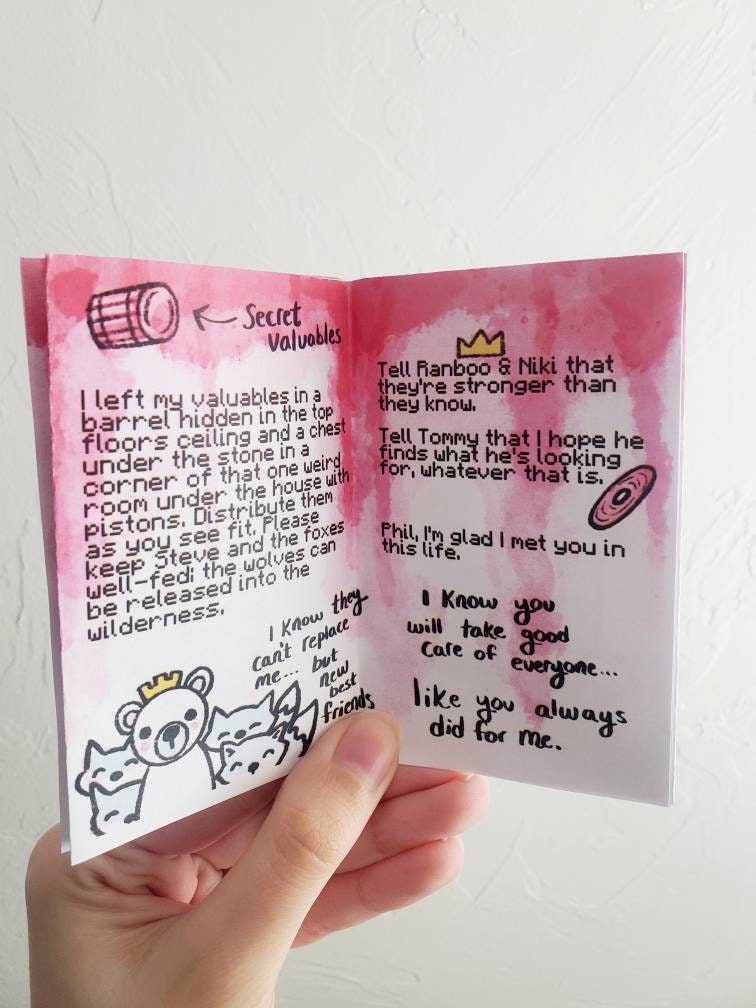 Secret
valuables
I left my valuables in a
barrel hidden in the top
floors ceiling and a chest
under the stone in a
corner of that one weird
room under the house with
pistons. Distribute them
as you see fit. Please
keep Steve and the foxes
well-fed; the wolves can
be released into the
wilderness.
I know they
can't replace
me... but
new
best
friends
Tell Ranboo & Niki that
they're stronger than
they know.
Tell Tommy that I hope he
finds what he's looking
for, whatever that is.
Phil, I'm glad I met you in
this life.
I know you
will take good
care of everyone...
like you always
did for me.